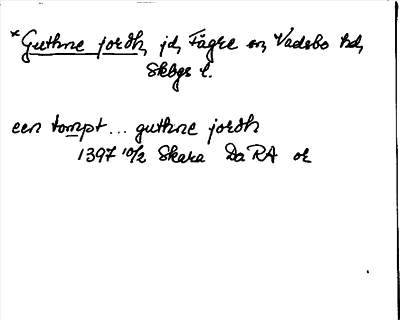 *Guthne jordh, jd, Fägre sn, Vadsbo hd,
Skbgs l.
een tompt... guthne jordh
1397 10/2 Skara Da RA or